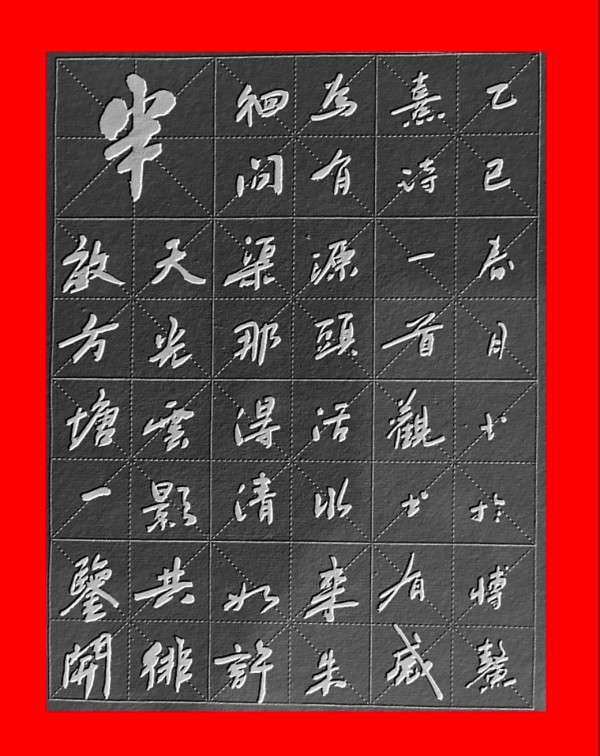 半
畝方塘一鑒開
天光雲影共徘
徊问渠那得清如許
為有源頭活水来朱
熹诗一首觀书有感
乙巳春月书於博鰲